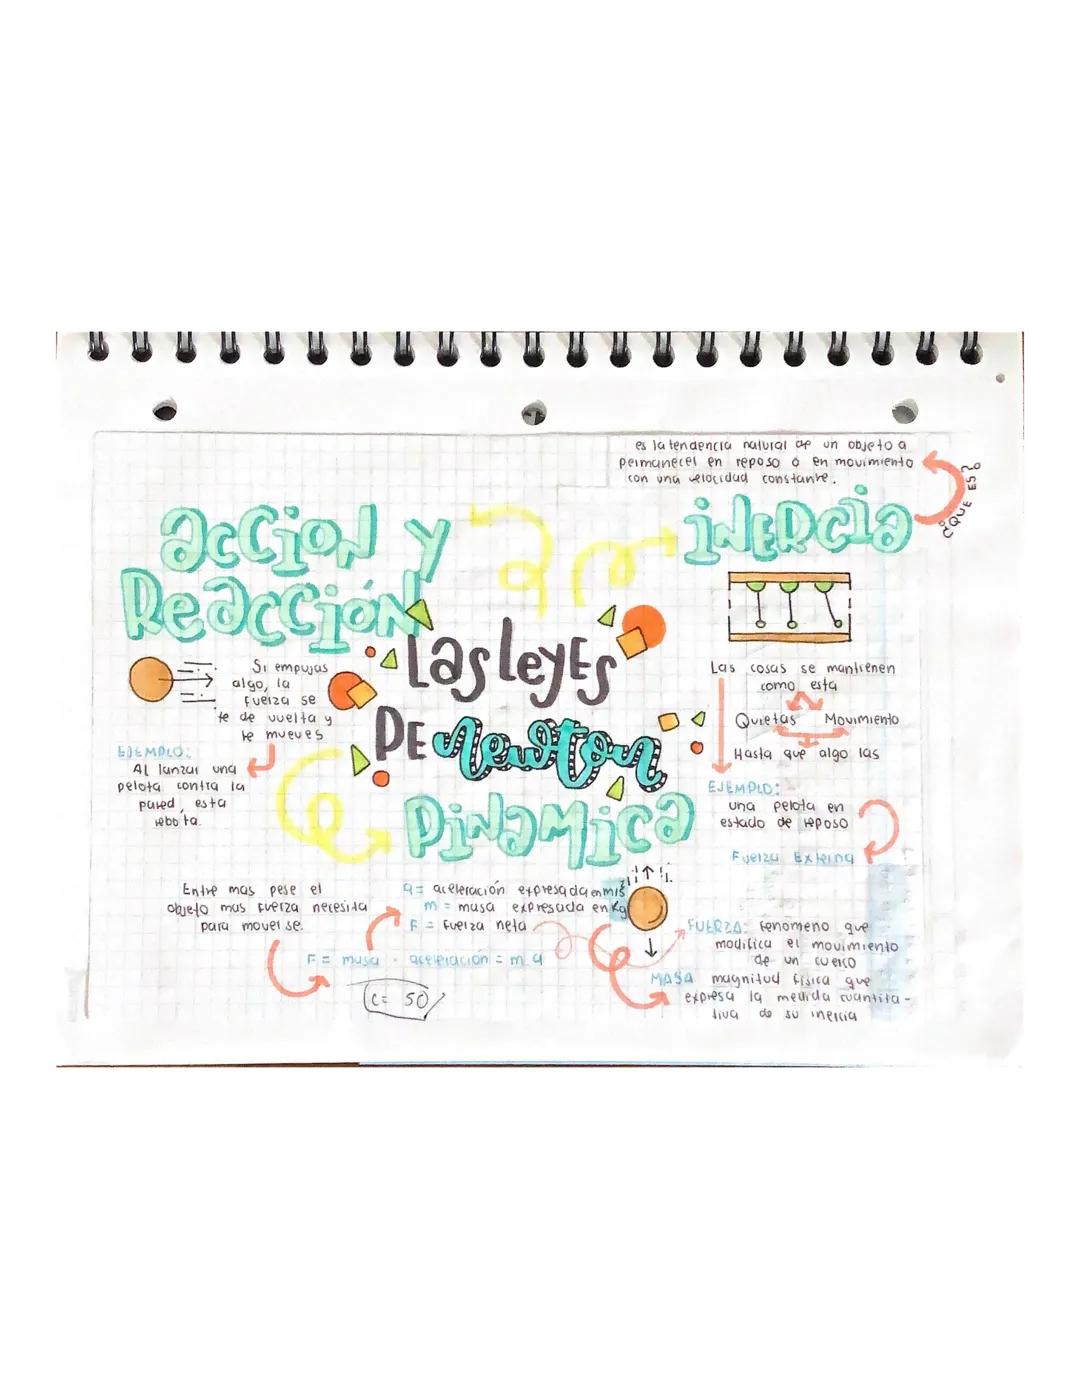 es la tendencia natural de un objeto a
permanecer en reposo o en movimiento
con una velocidad constante.
¿QUE ES?
acción y
Reacción
inercia
Las leyes
DE newton
Si empujas
algo, la
fuerza se
te de vuelta y
te mueves
EJEMPLO:
Al lanzar una
pelota contra la
pared, esta
rebota.
Las cosas se mantienen
como esta
Quietas Movimiento
Hasta que algo las
EJEMPLO:
una pelota en
estado de reposo
Fuerza Externa
Dinamica
Entre mas pese el
objeto mas fuerza necesita
para moverse.
a = aceleración expresada en m/s²
m = masa expresada en Kg
F = fuerza neta
F = masa · aceleración = m.a
C= 50
FUERZA: fenomeno que
modifica el movimiento
de un cuerpo
MASA magnitud fisica que
expresa la medida cuantita-
tiva de su inercia